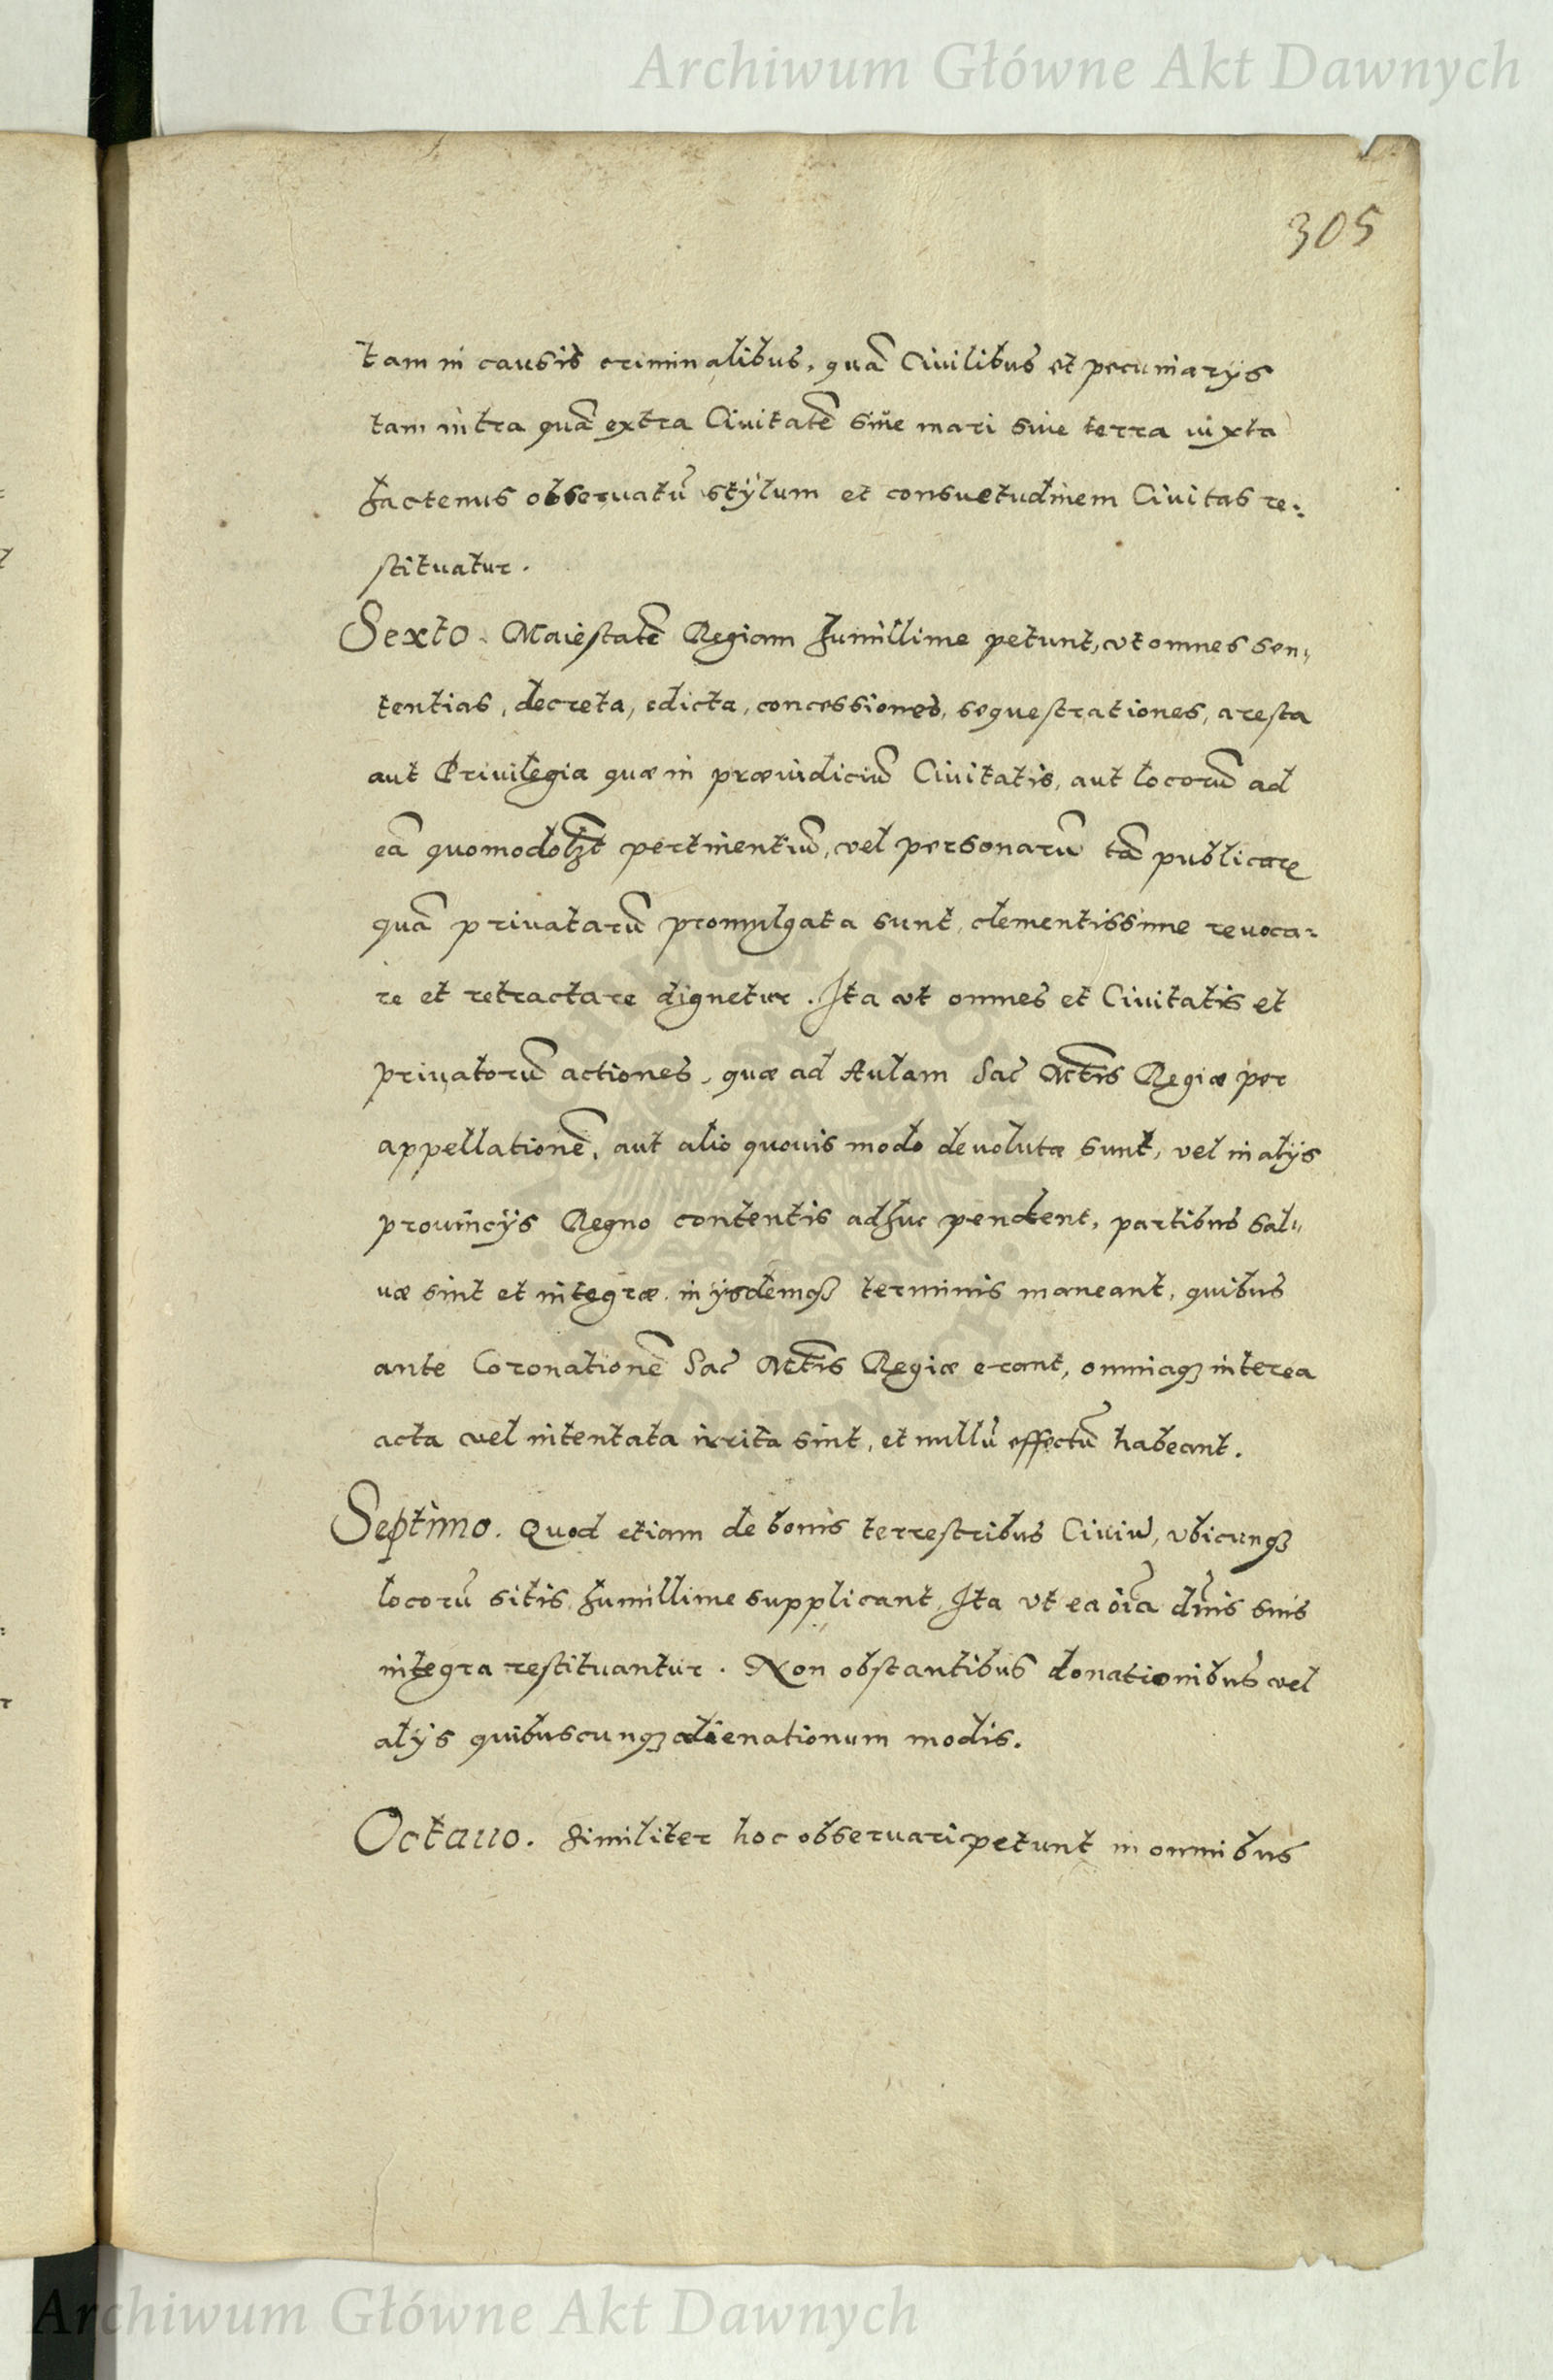 Archiwum Główne Akt Dawnych
305
tam in causis criminalibus, quã Ciuilibus et pecuniarijs
tam intra quã extra Ciuitatẽ siue mari siue terra iuxta
hactenus obseruatũ stÿlum et consuetudinem Ciuitas re-
stituatur.
Sexto. Maiestatẽ Regiam humillime petunt, vt omnes sen-
tentias, decreta, edicta, concessiones, sequestrationes, aresta
aut Priuilegia quæ in præiudiciũ Ciuitatis, aut locorũ ad
eã quomodolȝt pertinentiũ, vel personarũ tã publicarũ
quã priuatarũ promulgata sunt, clementissime reuoca-
re et retractare dignetur. Ita vt omnes et Ciuitatis et
priuatorũ actiones, quæ ad Aulam Sac̃ Mt̃is Regiæ per
appellationẽ, aut alio quouis modo deuolutæ sunt, vel in alijs
prouincijs Regno contentis adhuc pendent, partibus sal-
uæ sint et integræ, in ijsdemqȝ terminis maneant, quibus
ante Coronationẽ Sac̃ Mt̃is Regiæ erant, omniaqȝ interea
acta vel intentata irrita sint, et nullũ effectũ habeant.
Septimo. Quod etiam de bonis terrestribus Ciuiũ, vbicunqȝ
locorũ sitis humillime supplicant, Ita vt ea oĩa dñis suis
integra restituantur. Non obstantibus donationibus vel
alijs quibuscunqȝ alienationum modis.
Octauo. Similiter hoc obseruari petunt in omnibus
Archiwum Główne Akt Dawnych